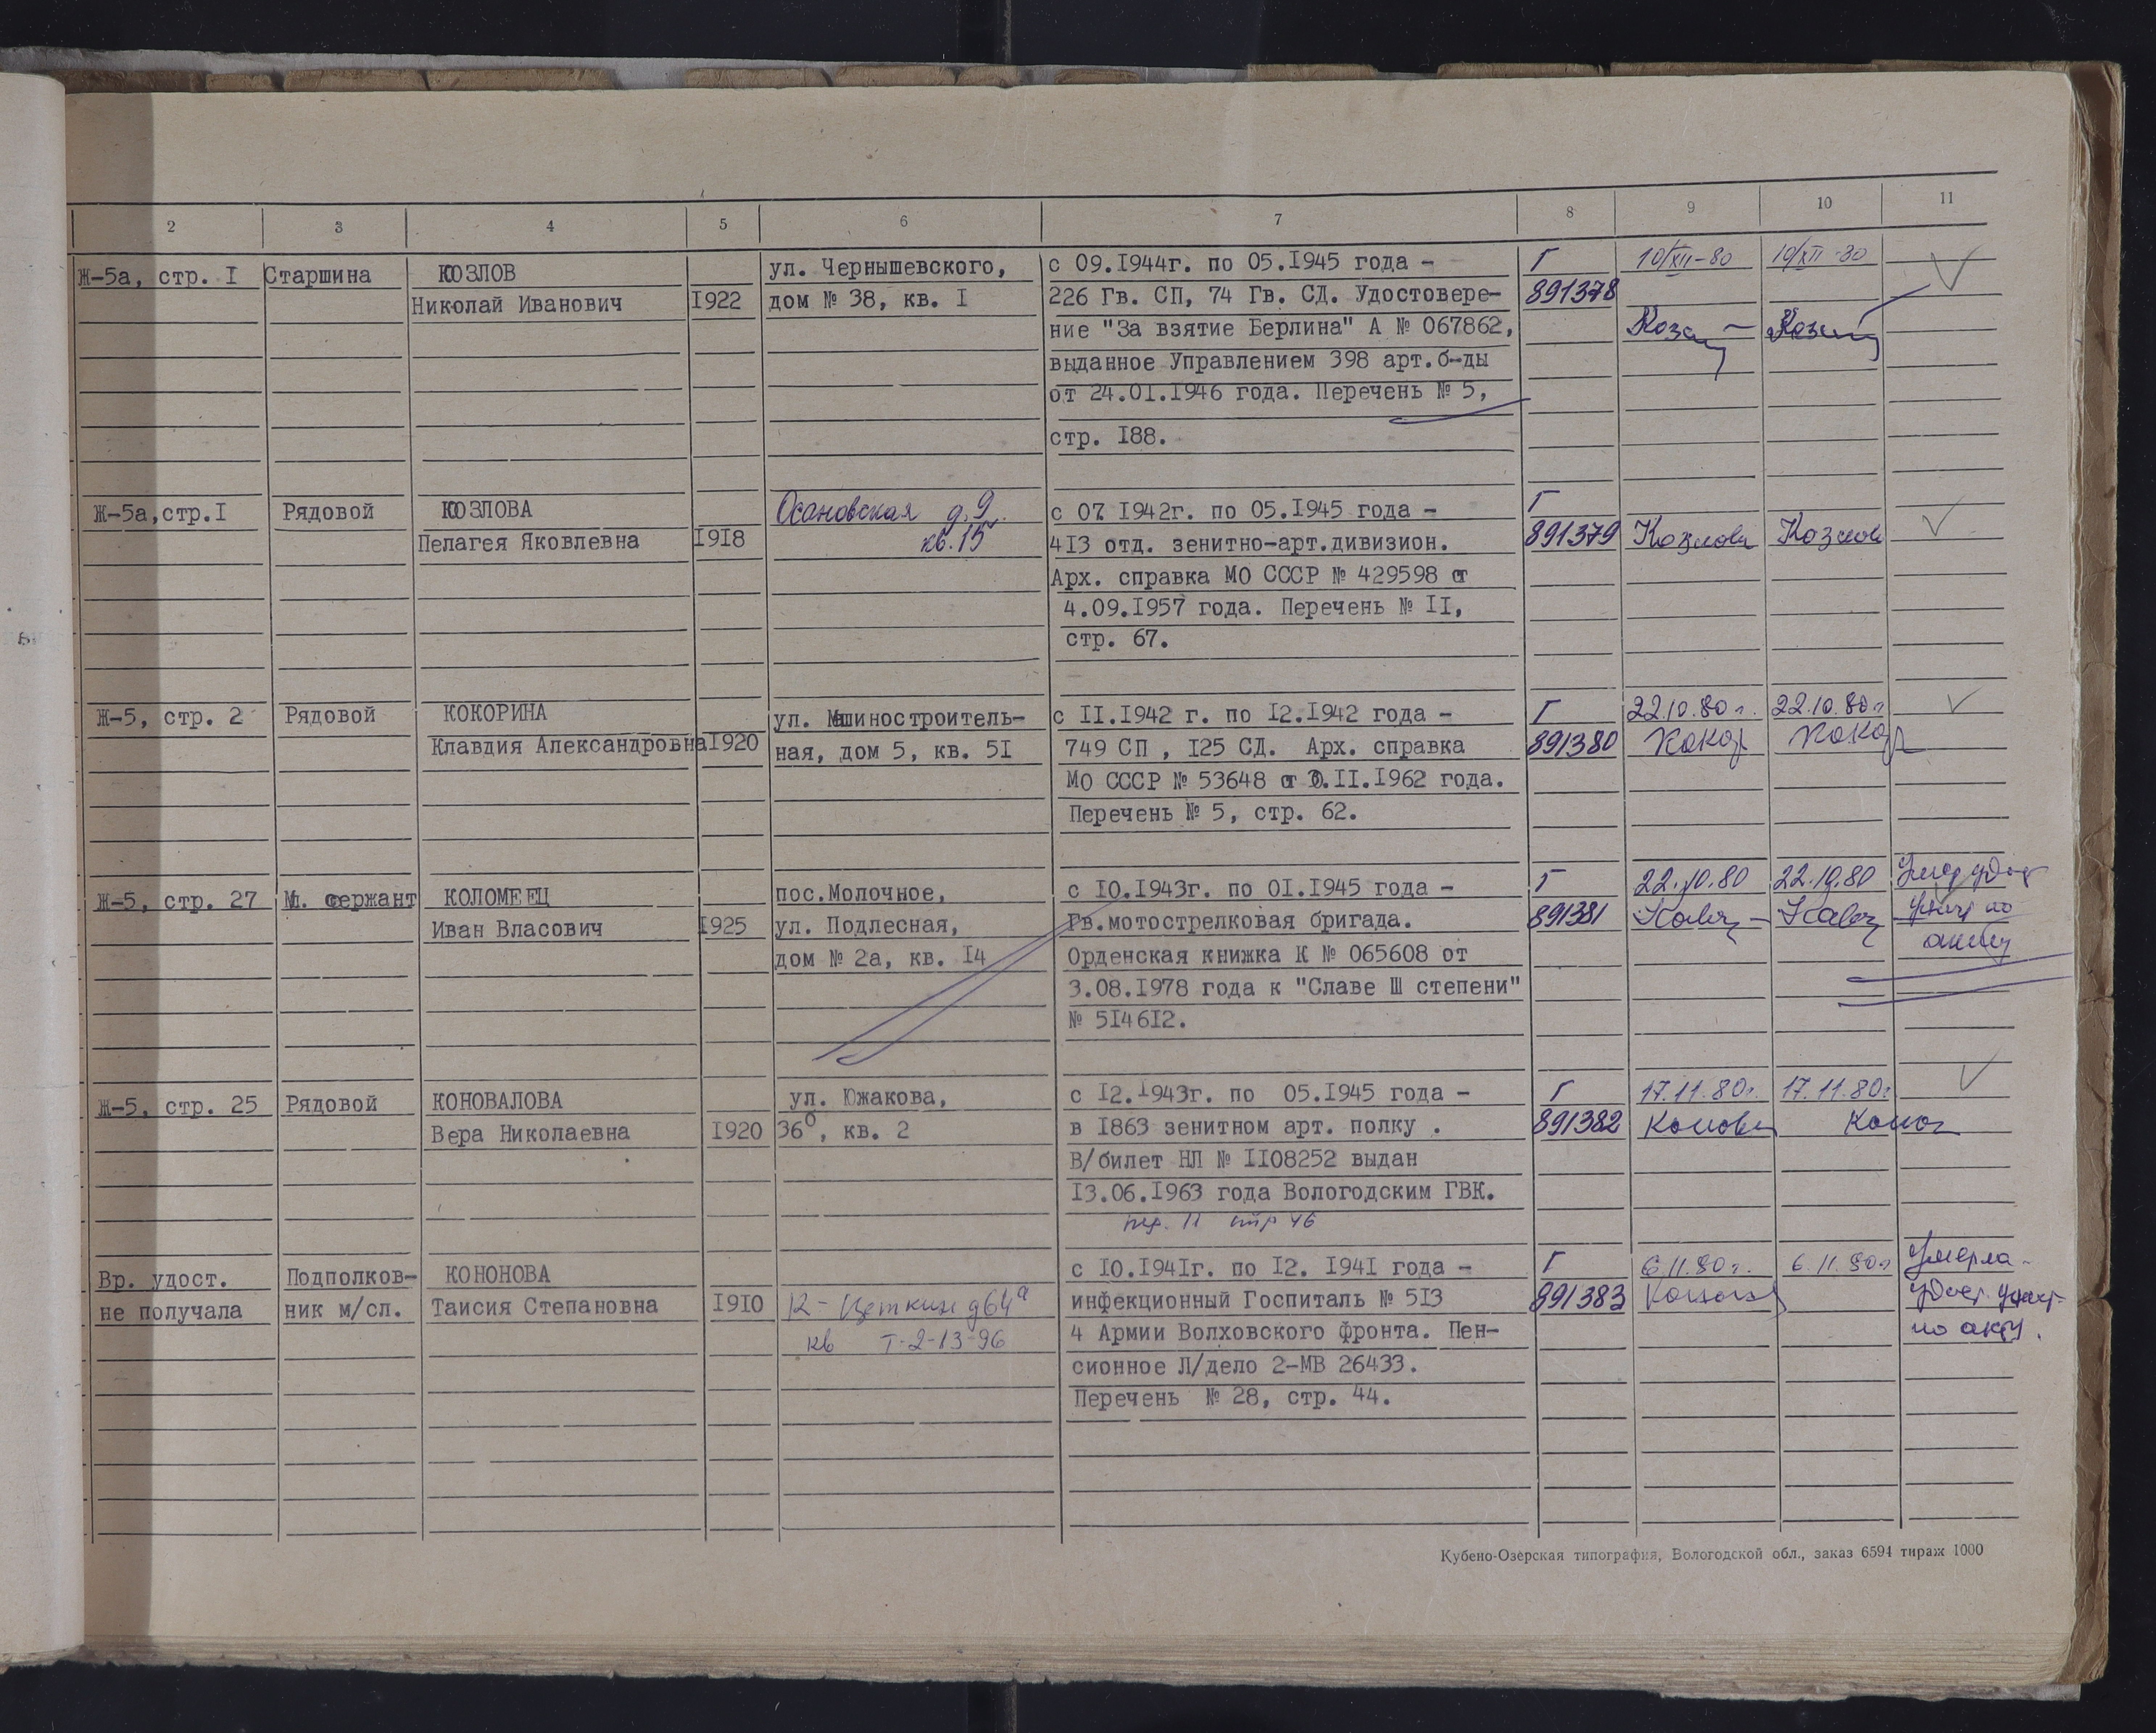 2 3 4 5 6 7 8 9 10 11
Ж-5а, стр. I Старшина КОЗЛОВ ул. Чернышевского, с 09.I944г. по 05.I945 года - Г 10/XII-80 10/XII-80
Николай Иванович I922 дом № 38, кв. I 226 Гв. СП, 74 Гв. СД. Удостовере- 891378
ние "За взятие Берлина" А № 067862,
выданное Управлением 398 арт.б-ды
от 24.0I.I946 года. Перечень № 5,
стр. I88.
Ж-5а,стр.I Рядовой КОЗЛОВА Осановская д.9 с 07 I942г. по 05.I945 года - Г
Пелагея Яковлевна I918 кв.15 4I3 отд. зенитно-арт.дивизион. 891379 Козлова Козлов
Арх. справка МО СССР № 429598 от
4.09.I957 года. Перечень № II,
стр. 67.
Ж-5, стр. 2 Рядовой КОКОРИНА ул. Машиностроитель- с II.I942 г. по I2.I942 года - Г 22.10.80 г. 22.10.80 г
Клавдия Александровна I920 ная, дом 5, кв. 5I 749 СП , I25 СД. Арх. справка 891380 Кокор Кокор
МО СССР № 53648 от .II.I962 года.
Перечень № 5, стр. 62.
Ж-5, стр. 27 Мл. сержант КОЛОМЕЕЦ пос.Молочное, с I0.I943г. по 0I.I945 года - Г 22.10.80 22.10.80 Умер
Иван Власович I925 ул. Подлесная, Гв.мотострелковая бригада. 891381 по
дом № 2а, кв. I4 Орденская книжка К № 065608 от акту
3.08.I978 года к "Славе Ш степени"
№ 5I46I2.
Ж-5, стр. 25 Рядовой КОНОВАЛОВА ул. Южакова, с I2.I943г. по 05.I945 года - Г 17.11.80г. 17.11.80г.
Вера Николаевна I920 36б, кв. 2 в I863 зенитном арт. полку . 891382 Конова Конов
В/билет НЛ № II08252 выдан
I3.06.I963 года Вологодским ГВК.
пер. 11 стр 46
Вр. удост. Подполков- КОНОНОВА с I0.I94Iг. по I2. I94I года - Г 6.11.80г. 6.11.80г Умерла
не получала ник м/сл. Таисия Степановна I9I0 К-Цеткин д64а инфекционный Госпиталь № 5I3 891383 удост.
кв Т-2-13-96 4 Армии Волховского фронта. Пен- по акту.
сионное Л/дело 2-МВ 26433.
Перечень № 28, стр. 44.
Кубено-Озерская типография, Вологодской обл., заказ 6594 тираж 1000